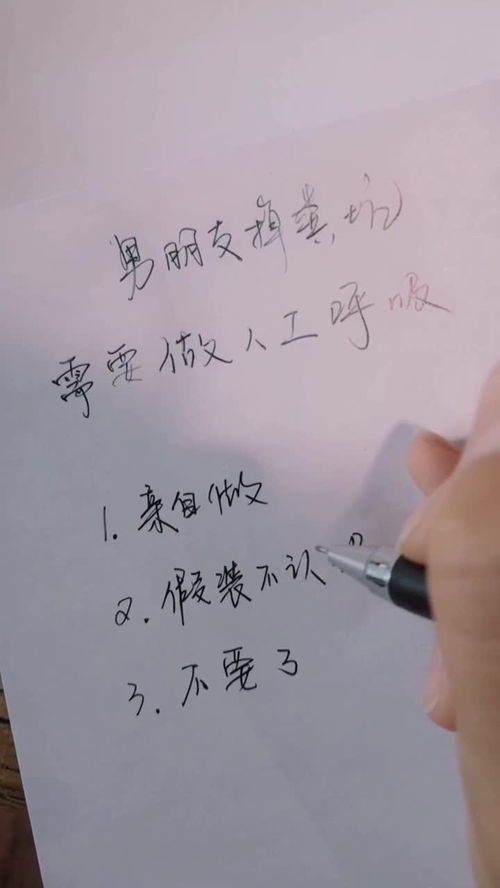 男朋友掉粪坑
需要做人工呼吸
1. 亲自做
2. 假装不认
3. 不要了